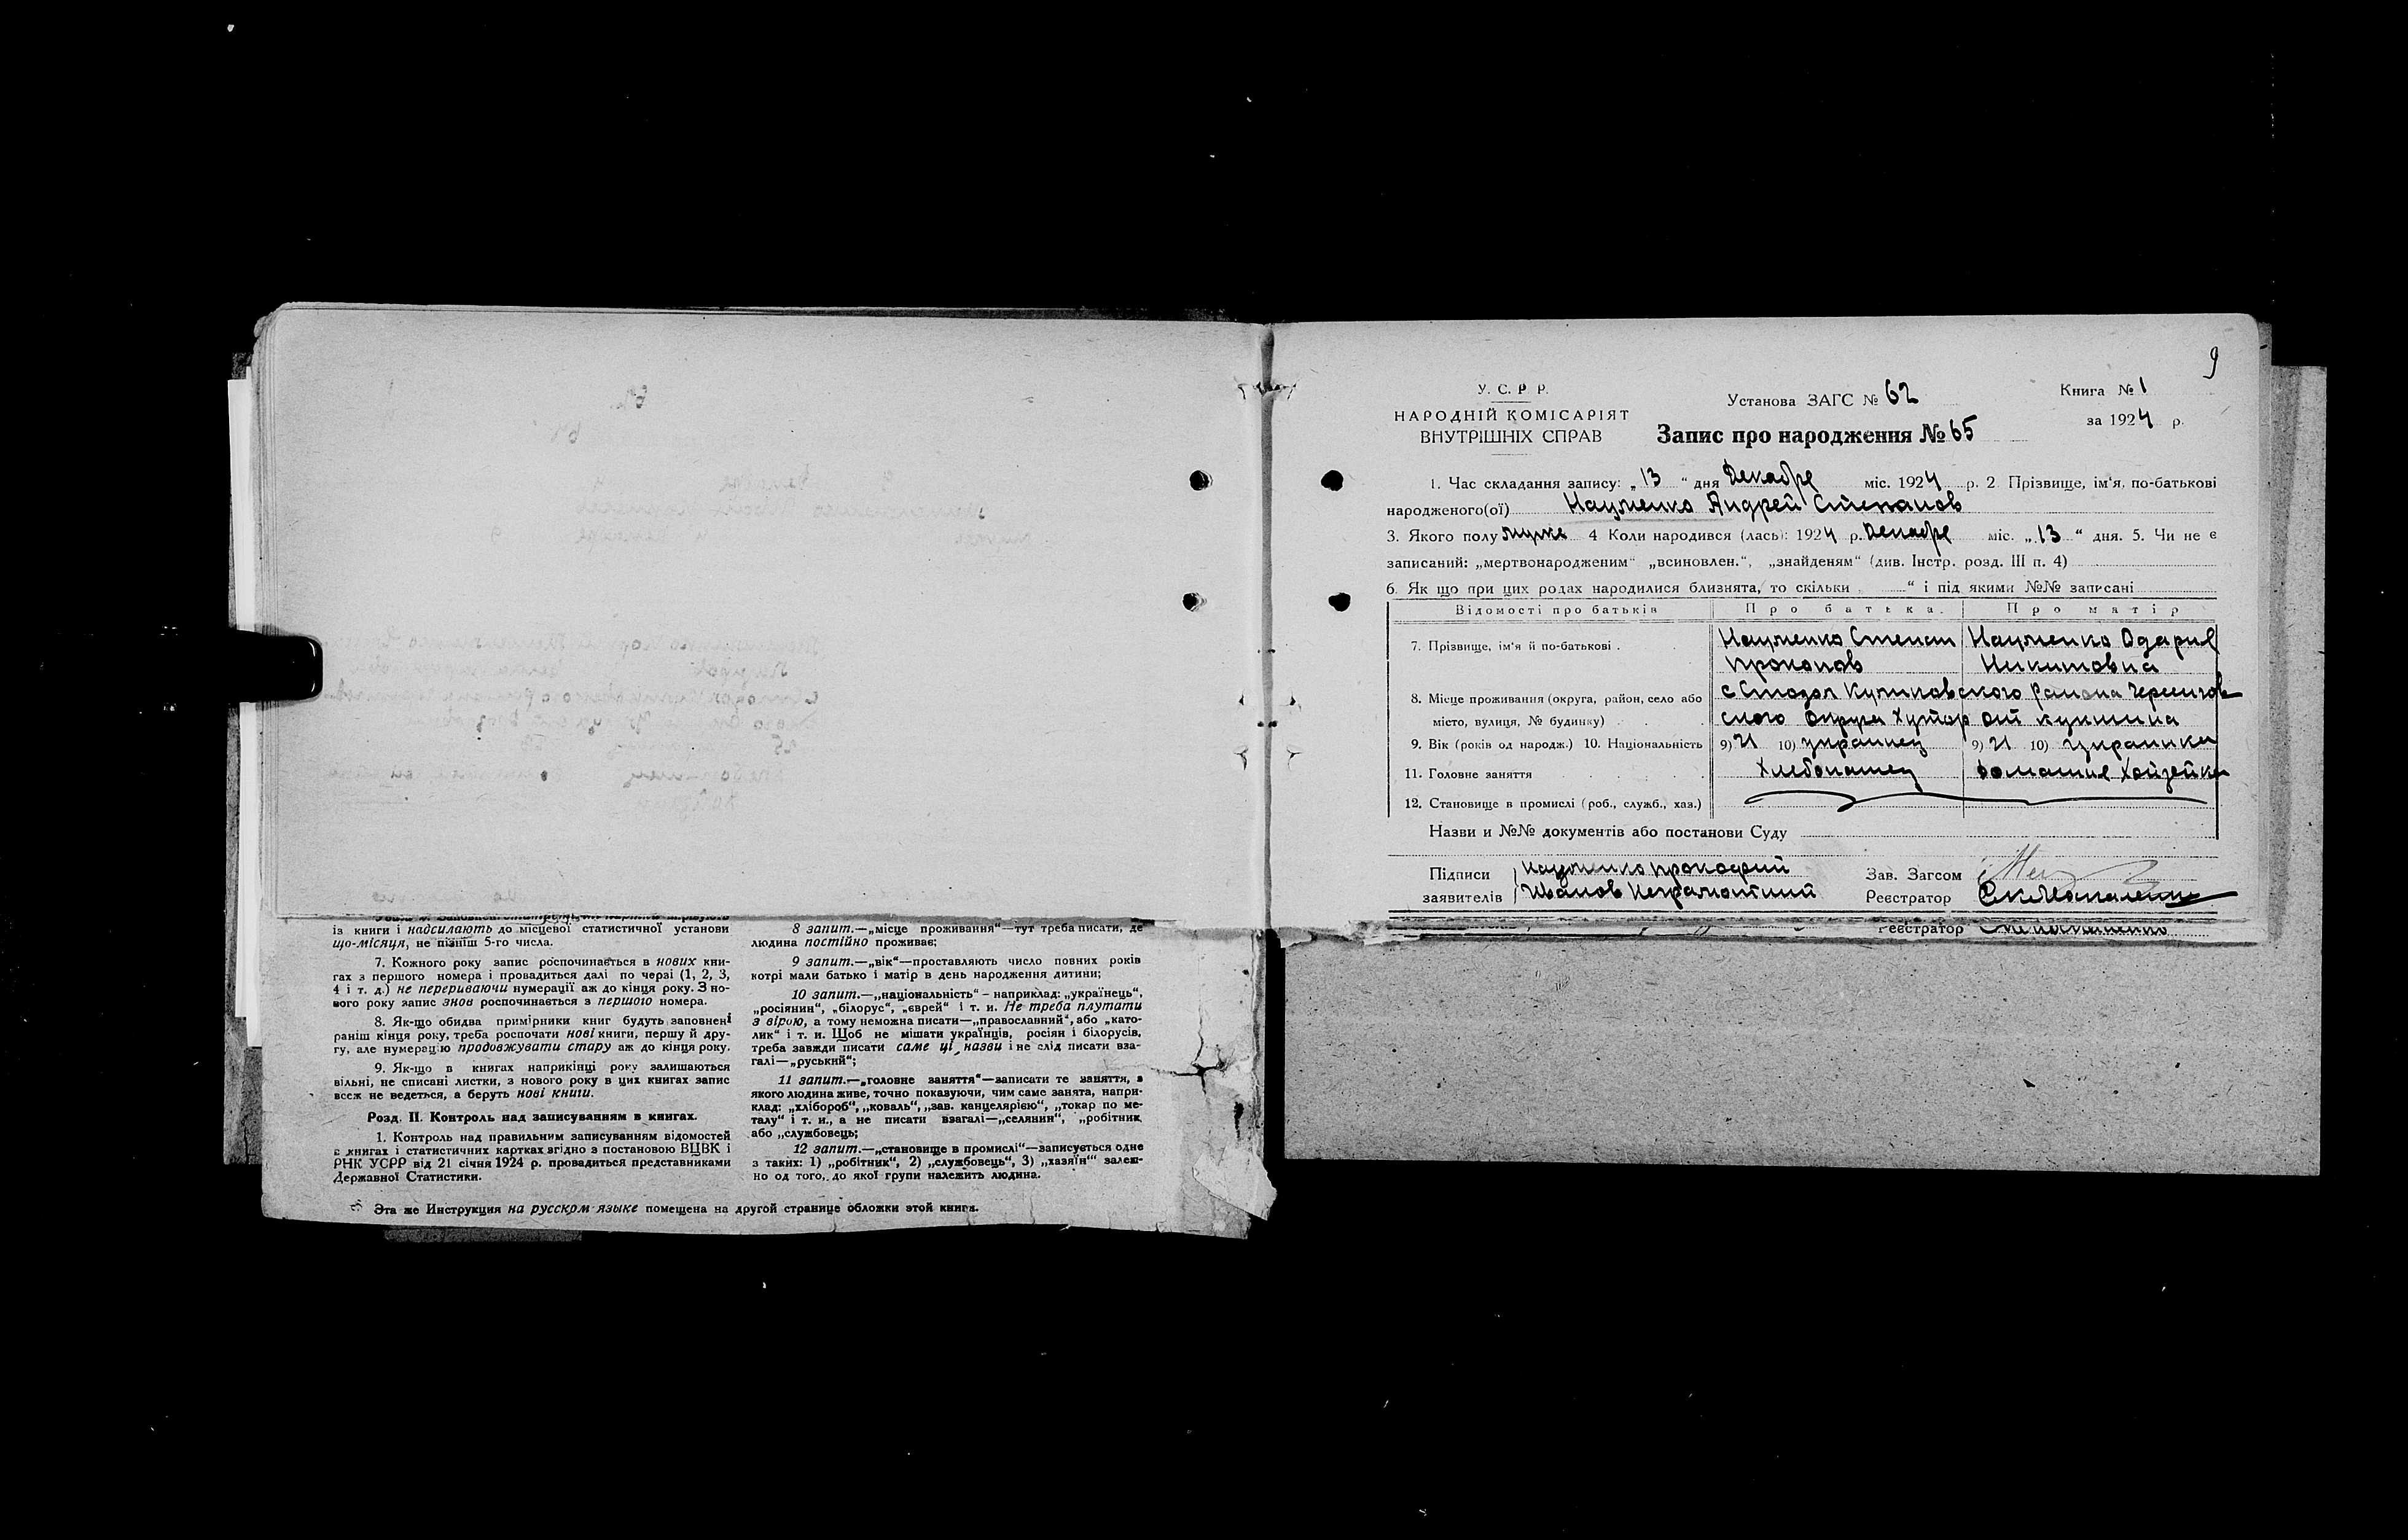 із книги і надсилають до місцевої статистичної установи
що-місяця, не пізніш 5-го числа.
7. Кожного року запис роспочинається в нових кни-
гах з першого номера і провадиться далі по черзі (1, 2, 3,
4 і т. д.) не перериваючи нумерації аж до кінця року. З но-
вого року запис знов роспочинається з першого номера.
8. Як-що обидва примірники книг будуть заповнені
раніш кінця року, треба роспочати нові книги, першу й дру-
гу, але нумерацію продовжувати стару аж до кінця року.
9. Як-що в книгах наприкінці року залишаються
вільні, не списані листки, з нового року в цих книгах запис
всеж не ведеться, а беруть нові книги.
Розд. II. Контроль над записуванням в книгах.
1. Контроль над правильним записуванням відомостей
в книгах і статистичних картках згідно з постановою ВЦВК і
РНК УСРР від 21 січня 1924 р. провадиться представниками
Державної Статистики.
8 запит.—„місце проживання“—тут треба писати, де
людина постійно проживає;
9 запит.—„вік“—проставляють число повних років
котрі мали батько і матір в день народження дитини;
10 запит.—„національність“ – наприклад: „українець“,
„росіянин“, „білорус“, „єврей“ і т. и. Не треба плутати
з вірою, а тому неможна писати—„православний“, або „като-
лик“ і т. и. Щоб не мішати українців, росіян і білорусів,
треба завжди писати саме ці назви і не слід писати вза-
галі—„руський“;
11 запит.—„головне заняття“—записати те заняття, з
якого людина живе, точно показуючи, чим саме занята, напри-
клад: „хлібороб“, „коваль“, „зав. канцелярією“, „токар по ме-
талу“ і т. и., а не писати взагалі—„селянин“, „робітник
або „службовець;
12 запит.—„становище в промислі“—записується одне
з таких: 1) „робітник“, 2) „службовець“, 3) „хазяїн“ залеж-
но од того, до якої групи належить людина.
Эта же Инструкция на русском языке помещена на другой странице обложки этой книги.
9
У. С. Р. Р.
НАРОДНІЙ КОМІСАРІЯТ
ВНУТРІШНІХ СПРАВ
Установа ЗАГС № 62
Запис про народження № 65
Книга № 1
за 1924 р.
1. Час складання запису: „13“ дня Декабре міс. 1924 р. 2. Прізвище, ім‘я, по-батькові
народженого(ої) Науменко Андрей Степанов
3. Якого полу муже 4 Коли народився (лась): 1924 р. Декабре міс. „13“ дня. 5. Чи не є
записаний: „мертвонародженим“ „всиновлен.“, „знайденям“ (див. Інстр. розд. III п. 4)
6. Як що при цих родах народилися близнята, то скільки “ і під якими №№ записані
Відомості про батьків Про батька. Про матір
7. Прізвище, ім‘я й по-батькові . Науменко Степан Науменко Одария
Прокопов Никитовна
8. Місце проживання (округа, район, село або с Стодол Куликовского района Чернигов
місто, вулиця, № будинку) ского Округа Хутор
9. Вік (років од народж.) 10. Національність 9) 21 10) украинец 9) 21 10) украинка
11. Головне заняття Хлебопашец домашня Хойзейка
12. Становище в промислі (роб., служб., хаз.)
Назви и №№ документів або постанови Суду
Підписи Науменко Прокофий
заявителів Иванов Неграмотний
Зав. Загсом
Реєстратор
Реєстратор